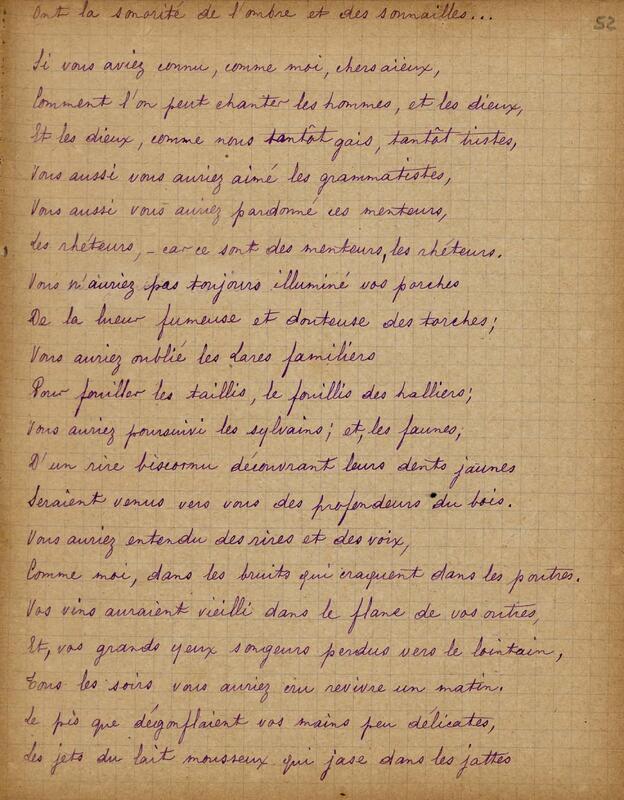 Ont la sonorité de l'ombre et des sonnailles...
52
Si vous aviez connu, comme moi, chers aïeux,
Comment l'on peut chanter les hommes, et les dieux,
Et les dieux, comme nous tantôt gais, tantôt tristes,
Vous aussi vous auriez aimé les grammatistes,
Vous aussi vous auriez pardonné ces menteurs,
Les rhéteurs, - car ce sont des menteurs, les rhéteurs.
Vous n'auriez pas toujours illuminé vos porches
De la lueur fumeuse et douteuse des torches;
Vous auriez oublié les Lares familiers
Pour fouiller les taillis, le fouillis des halliers;
Vous auriez poursuivi les sylvains; et, les faunes,
D'un rire biscornu découvrant leurs dents jaunes
Seraient venus vers vous des profondeurs du bois.
Vous auriez entendu des rires et des voix,
Comme moi, dans les bruits qui craquent dans les poutres.
Vos vins auraient vieilli dans le flanc de vos outres,
Et, vos grands yeux songeurs perdus vers le lointain,
Tous les soirs vous auriez cru revivre un matin.
Le pis que dégonflaient vos mains peu délicates,
Les jets du lait mousseux qui jase dans les jattes